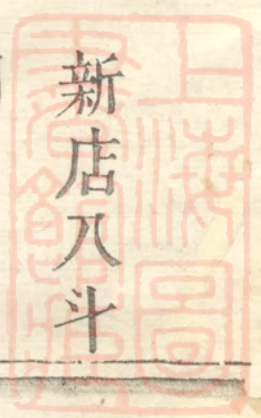 新店八斗
上海圖書館藏